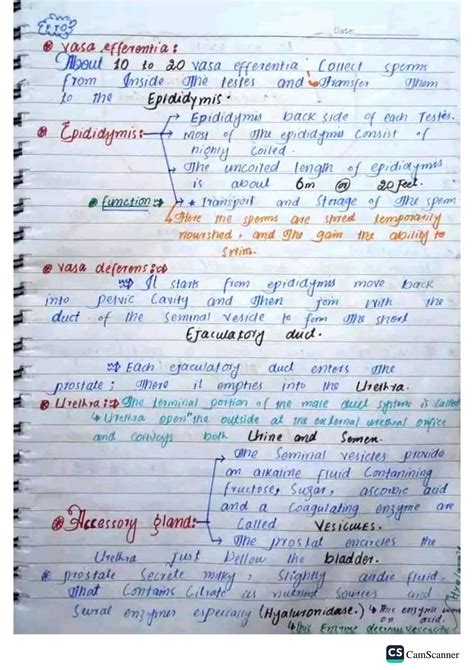 PTO
Date:
vasa efferentia:
About 10 to 20 vasa efferentia Collect sperms
from Inside The testes and Transfer Them
to the Epididymis.
Epididymis back side of each Testes.
Epididymis: Most of The epididymis Consist of
highly Coiled.
The uncoiled length of epididymis
is about 6m or 20 feet.
function: Transport and Storage of The sperm
Here the sperms are stored temporarily
nourished, and The gain the ability to
Swim.
vasa deferens:
It starts from epididymis move back
into pelvic Cavity and Then Join with the
duct of the seminal vesicle to form The short
Ejaculatory duct.
Each ejaculatory duct enters The
prostate; There it empties into the Urethra.
Urethra: The terminal portion of the male duct systems is called
Urethra open "the outside at the external urethral orifice
and conveys both Urine and Semen.
The Seminal vesicles provide
an alkaline fluid Contanining
fructose, Sugar, ascorbic acid
and a Coagulating enzyme are
Accessory gland: Called VESICULES.
The prostal encircles the
Urethra Just Bellow the bladder.
prostate Secrete milky, Slightly acidic fluid,
That Contains Citrate as nutrient Sources and
Seural enzymes especially (Hyaluronidase.) This enzyme work
on acid.
This Enzyme decreases
CS CamScanner